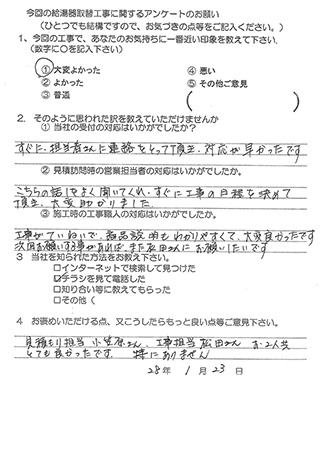 今回の給湯器取替工事に関するアンケートのお願い
(ひとつでも結構ですので、お気づきの点等をご記入ください。)
1、今回の工事で、あなたのお気持ちに一番近い印象を教えて下さい。
(数字に〇を記入下さい)
① 大変よかった ④ 悪い
② よかった ⑤ その他ご意見
③ 普通 ( )
2. そのように思われた訳を教えていただけませんか
① 当社の受付の対応はいかがでしたか?
すぐに、担当者さんに連絡をとって頂き、対応が早かったです
② 見積訪問時の営業担当者の対応はいかがでしたか?
こちらの話しをよく聞いてくれ、すぐに工事の日程を決めて
頂き、大変助かりました。
③ 施工時の工事職人の対応はいかがでしたか?
工事がていねいで、商品説明もわかりやすくて、大変良かったです
次回お願いする事があれば、また松田さんにお願いしたいです
3 当社を知られた方法をお教え下さい。
□インターネットで検索して見つけた
☑チラシを見て電話した
□知り合い等に教えてもらった
□その他(
4 お褒めいただける点、又こうしたらもっと良い点等ご意見下さい。
見積もり担当 小笠原さん、工事担当 松田さん お2人共
とても良かったです。 特にありません
28年 1月 23日